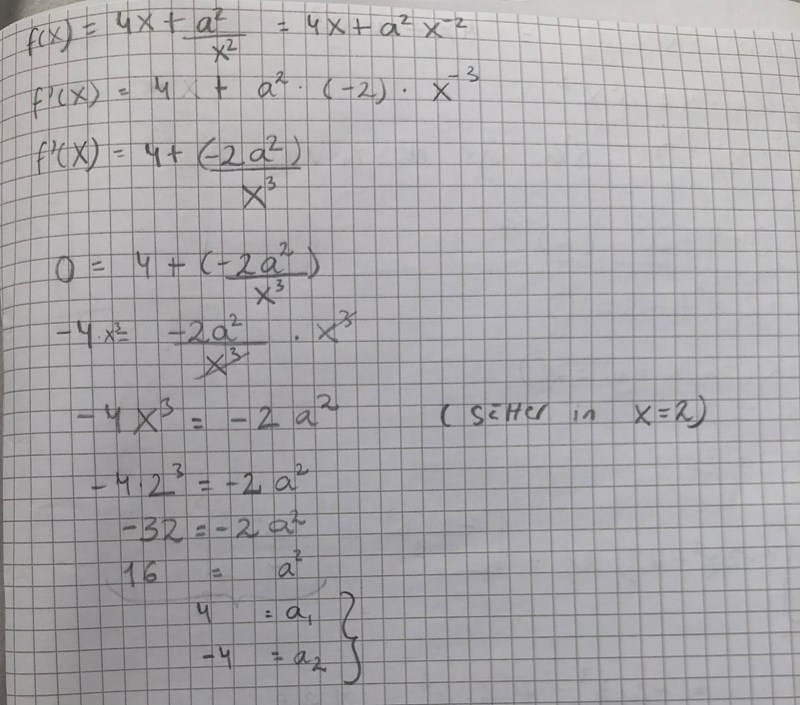 f(x) = 4x + a²/x² = 4x + a² x⁻²
f'(x) = 4 + a² · (-2) · x⁻³
f'(x) = 4 + (-2a²)/x³
0 = 4 + (-2a²/x³)
-4·x³ = -2a²/x³ · x³
-4x³ = -2a² (sätter in x=2)
-4·2³ = -2a²
-32 = -2a²
16 = a²
4 = a₁
-4 = a₂ }